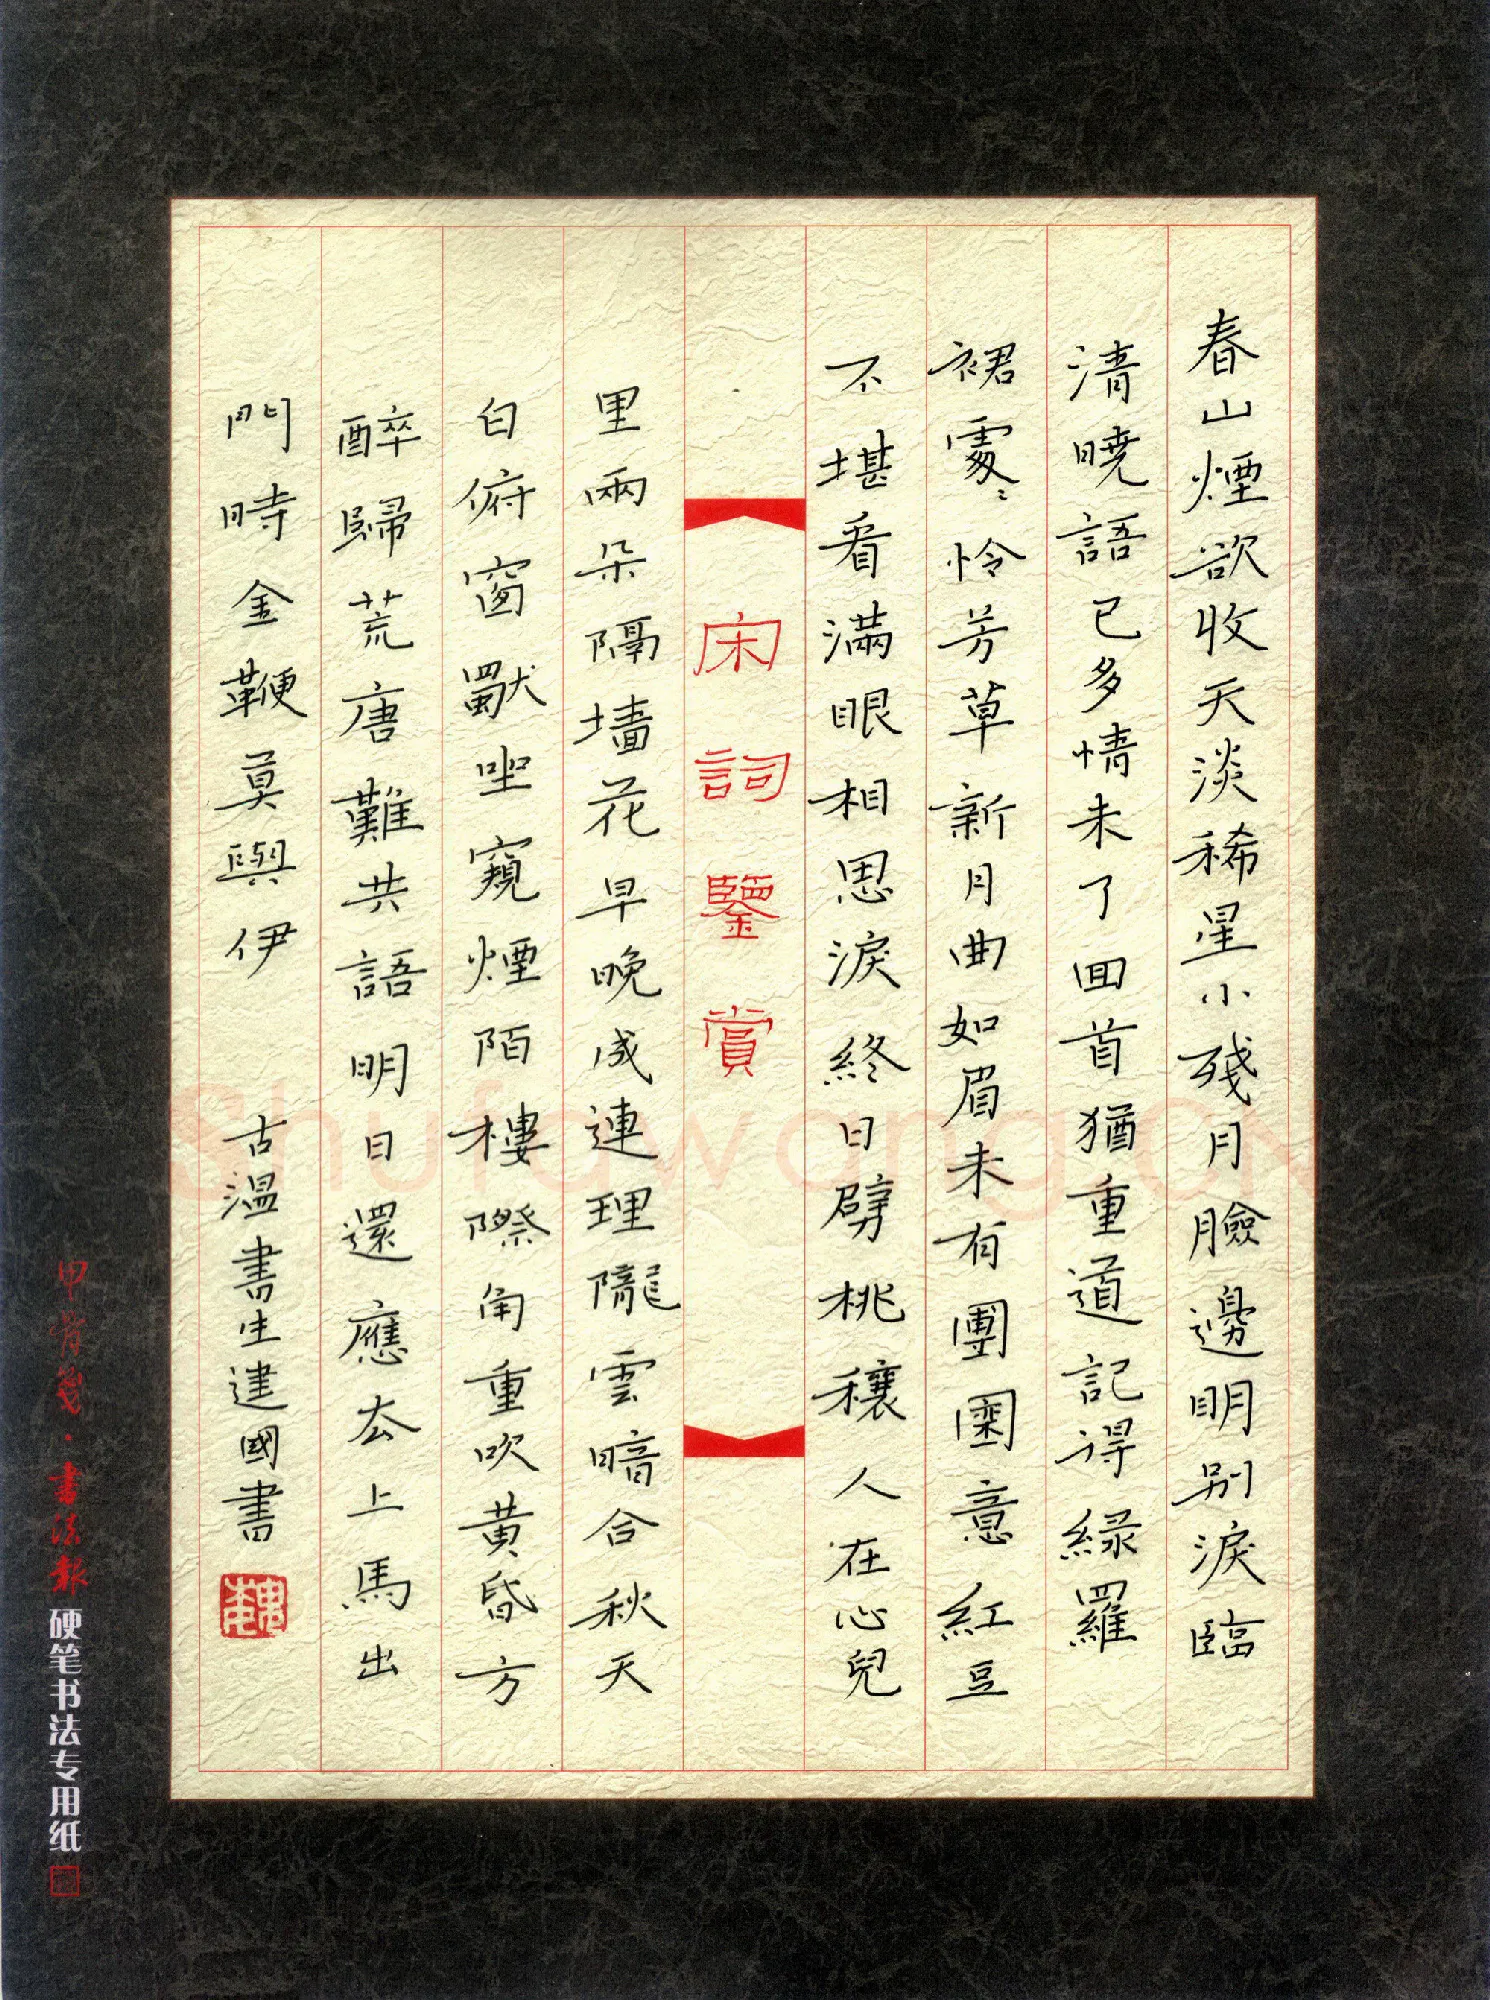 春山煙欲收天淡稀星小殘月臉邊明别淚臨
清曉語已多情未了回首猶重道記得緑羅
裙處〻怜芳草新月曲如眉未有團圞意紅豆
不堪看滿眼相思淚終日劈桃穰人在心兒
宋詞鑒賞
里兩朵隔墻花早晚成連理隴雲暗合秋天
白俯窗獨坐窺煙陌樓際角重吹黄昏方
醉歸荒唐難共語明日還應厺上馬出
門時金鞭莫與伊 古溫書生建國書
甲骨箋·書法報硬笔书法专用纸
Shufawang.cn